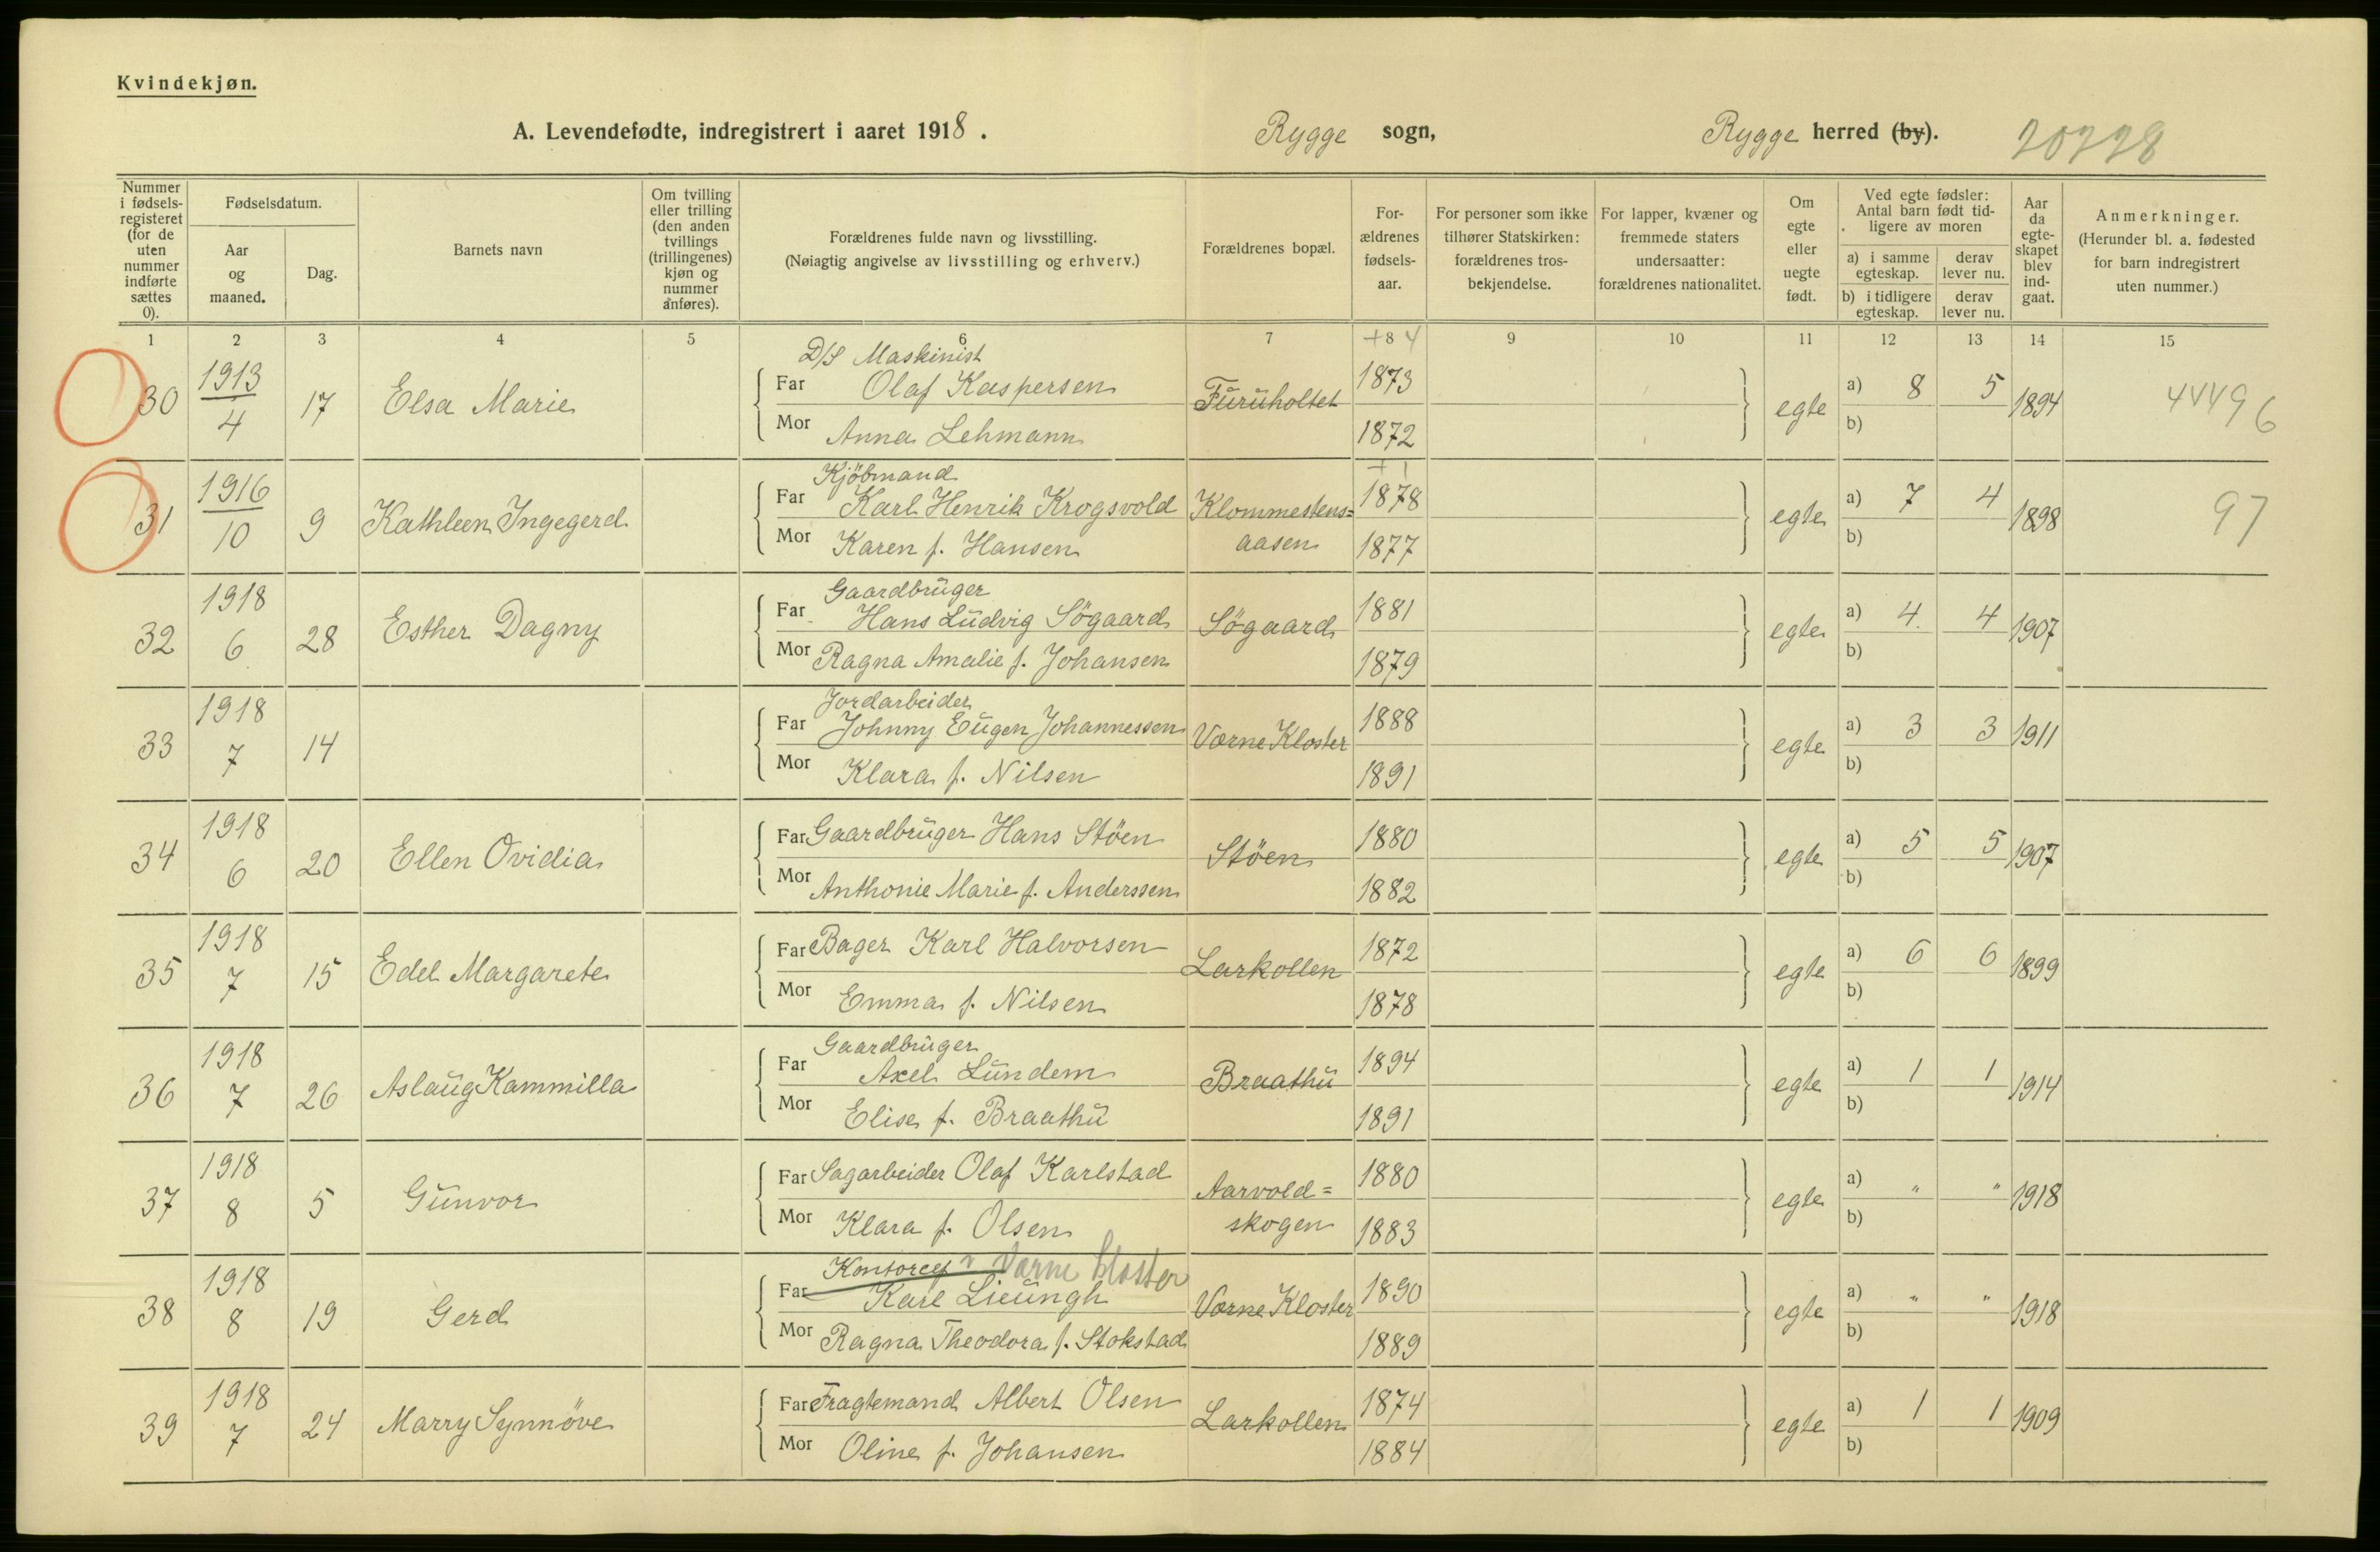 Kvindekjøn.
A. Levendefødte, indregistrert i aaret 1918. Rygge sogn, Rygge herred (by). 20728
Nummer i fødselsregisteret (for de uten nummer indførte sættes 0).
Fødselsdatum.
Aar og maaned.
Dag.
Barnets navn
Om tvilling eller trilling (den anden tvillings (trillingenes) kjøn og nummer anføres).
Forældrenes fulde navn og livsstilling.
(Nøiagtig angivelse av livsstilling og erhverv.)
Forældrenes bopæl.
Forældrenes fødselsaar.
For personer som ikke tilhører Statskirken: forældrenes trosbekjendelse.
For lapper, kvæner og fremmede staters undersaatter: forældrenes nationalitet.
Om egte eller uegte født.
Ved egte fødsler: Antal barn født tidligere av moren
a) i samme egteskap. derav lever nu.
b) i tidligere egteskap. derav lever nu.
Aar da egteskapet blev indgaat.
Anmerkninger.
(Herunder bl. a. fødested for barn indregistrert uten nummer.)
1 2 3 4 5 6 7 +84 9 10 11 12 13 14 15
D/S Maskinist
30 1913 4 17 Elsa Marie Far Olaf Kaspersen Furuholtet 1873 egte a) 8 5 1894 44496
Mor Anna Lehmann 1872 b)
Kjöbmand
31 1916 10 9 Kathleen Ingegerd Far Karl Henrik Krogsvold Klommestens= 1878 egte a) 7 4 1898 97
Mor Karen f. Hansen aasen 1877 b)
Gaardbruger
32 1918 6 28 Esther Dagny Far Hans Ludvig Sögaard Sögaard 1881 egte a) 4 4 1907
Mor Ragna Amalie f. Johansen 1879 b)
Jordarbeider
33 1918 7 14 Far Johnny Eugen Johannessen Værne Kloster 1888 egte a) 3 3 1911
Mor Klara f. Nilsen 1891 b)
34 1918 6 20 Ellen Ovidia Far Gaardbruger Hans Stöen Stöen 1880 egte a) 5 5 1907
Mor Anthonie Marie f. Anderssen 1882 b)
35 1918 7 15 Edel Margarete Far Bager Karl Halvorsen Larkollen 1872 egte a) 6 6 1899
Mor Emma f. Nilsen 1878 b)
Gaardbruger
36 1918 7 26 Aslaug Kammilla Far Axel Lundem Braathu 1894 egte a) 1 1 1914
Mor Elise f. Braathu 1891 b)
37 1918 8 5 Gunvor Far Sagarbeider Olaf Karlstad Aarvold= 1880 egte a) " " 1918
Mor Klara f. Olsen skogen 1883 b)
Værne kloster
38 1918 8 19 Gerd Far Karl Lieungh Værne Kloster 1890 egte a) " " 1918
Mor Ragna Theodora f. Stokstad 1889 b)
39 1918 7 24 Marry Synnöve Far Fragtemand Albert Olsen Larkollen 1874 egte a) 1 1 1909
Mor Oline f. Johansen 1884 b)